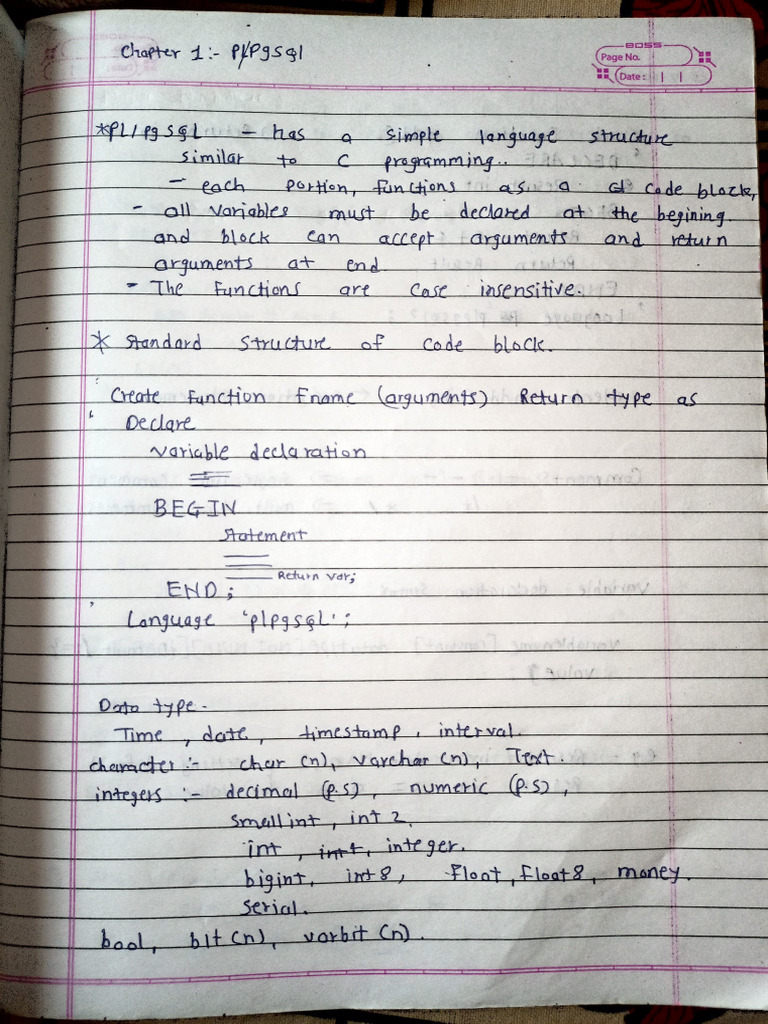 Chapter 1:- Pl/Pgsql
BOSS
Page No.
Date: | |
*Pl/pgsql - has a simple language structure
similar to C programming..
- each portion, functions as a code block,
- all variables must be declared at the begining.
and block can accept arguments and return
arguments at end.
- The functions are case insensitive.
* Standard structure of code block.
Create function Fname (arguments) Return type as
' Declare
variable declaration
BEGIN
statement
Return var;
END;
'
Language 'plpgsql';
Data type.
Time, date, timestamp, interval.
character:- char (n), varchar (n), Text.
integers :- decimal (p.s), numeric (p.s),
smallint, int 2,
int, int 4, integer.
bigint, int 8, float, float8, money.
serial.
bool, bit (n), varbit (n).